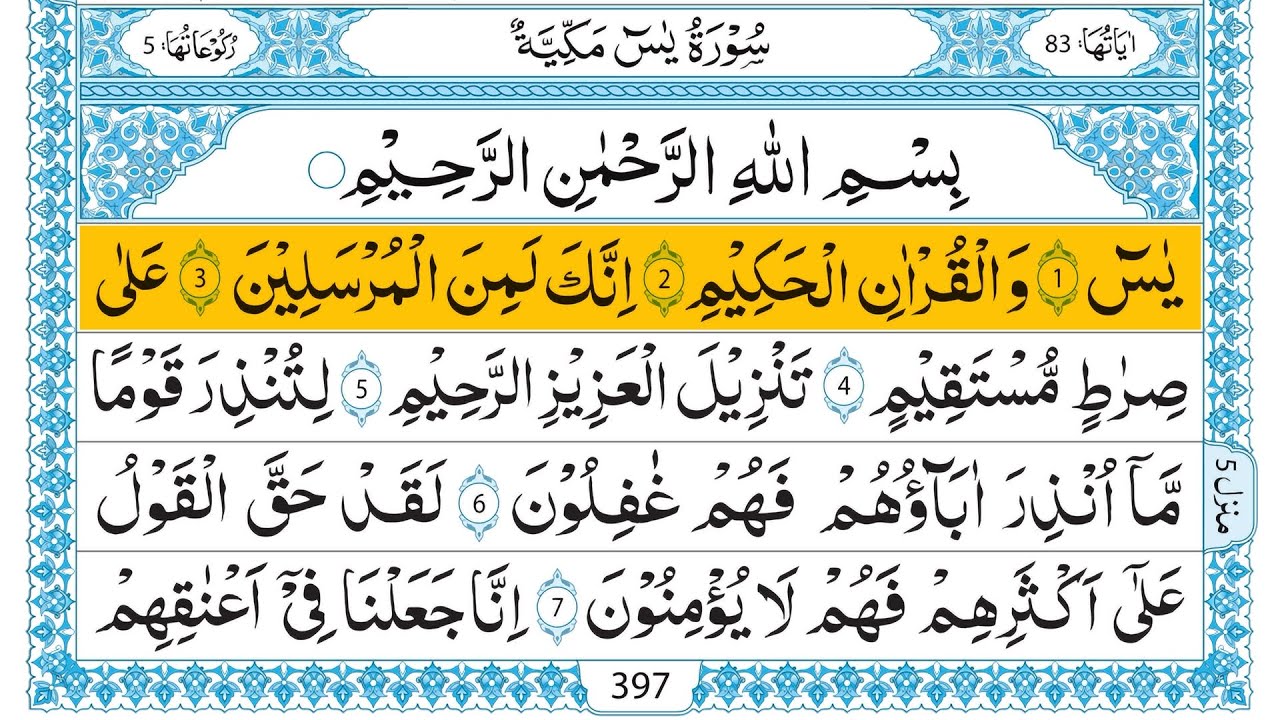 اٰيَاتُهَا: 83 سُوْرَةُ يٰسٓ مَكِّيَّةٌ رُكُوْعَاتُهَا: 5
بِسْمِ اللّٰهِ الرَّحْمٰنِ الرَّحِيْمِ
يٰسٓ 1 وَالْقُرْاٰنِ الْحَكِيْمِ 2 اِنَّكَ لَمِنَ الْمُرْسَلِيْنَ 3 عَلٰى
صِرٰطٍ مُّسْتَقِيْمٍ 4 تَنْزِيْلَ الْعَزِيْزِ الرَّحِيْمِ 5 لِتُنْذِرَ قَوْمًا
مَّآ اُنْذِرَ اٰبَآؤُهُمْ فَهُمْ غٰفِلُوْنَ 6 لَقَدْ حَقَّ الْقَوْلُ
منزل 5
عَلٰٓى اَكْثَرِهِمْ فَهُمْ لَا يُؤْمِنُوْنَ 7 اِنَّا جَعَلْنَا فِيْٓ اَعْنٰقِهِمْ
397